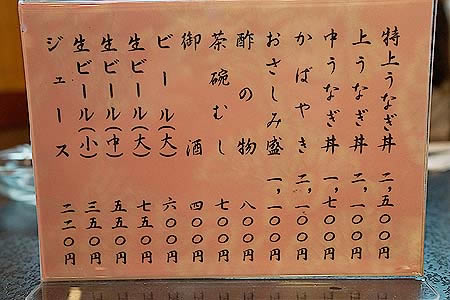 特上うなぎ丼 二、五〇〇円
上うなぎ丼 二、一〇〇円
中うなぎ丼 一、七〇〇円
かばやき 二、一〇〇円
おさしみ盛 一、一〇〇円
酢の物 八〇〇円
茶碗むし 七〇〇円
御酒 四〇〇円
ビール(大) 六〇〇円
生ビール(大) 七五〇円
生ビール(中) 五五〇円
生ビール(小) 三五〇円
ジュース 二二〇円